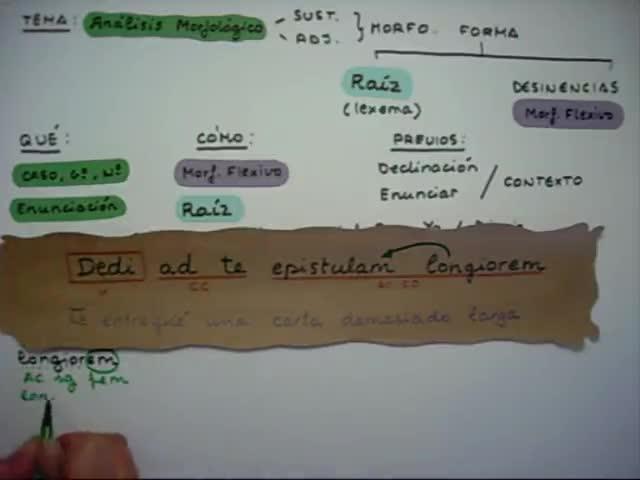 TEMA: Análisis Morfológico SUST. ADJ. MORFO. FORMA
Raíz
(lexema)
DESINENCIAS
Morf. Flexivo
QUÉ: CÓMO: PREVIOS:
CASO, Gº, Nº Morf. Flexivo Declinación
Enunciación Raíz Enunciar / CONTEXTO
Dedi ad te epistulam longiorem
V CC AC CD
Te entregué una carta demasiado larga
longiorem
AC sg fem
lon